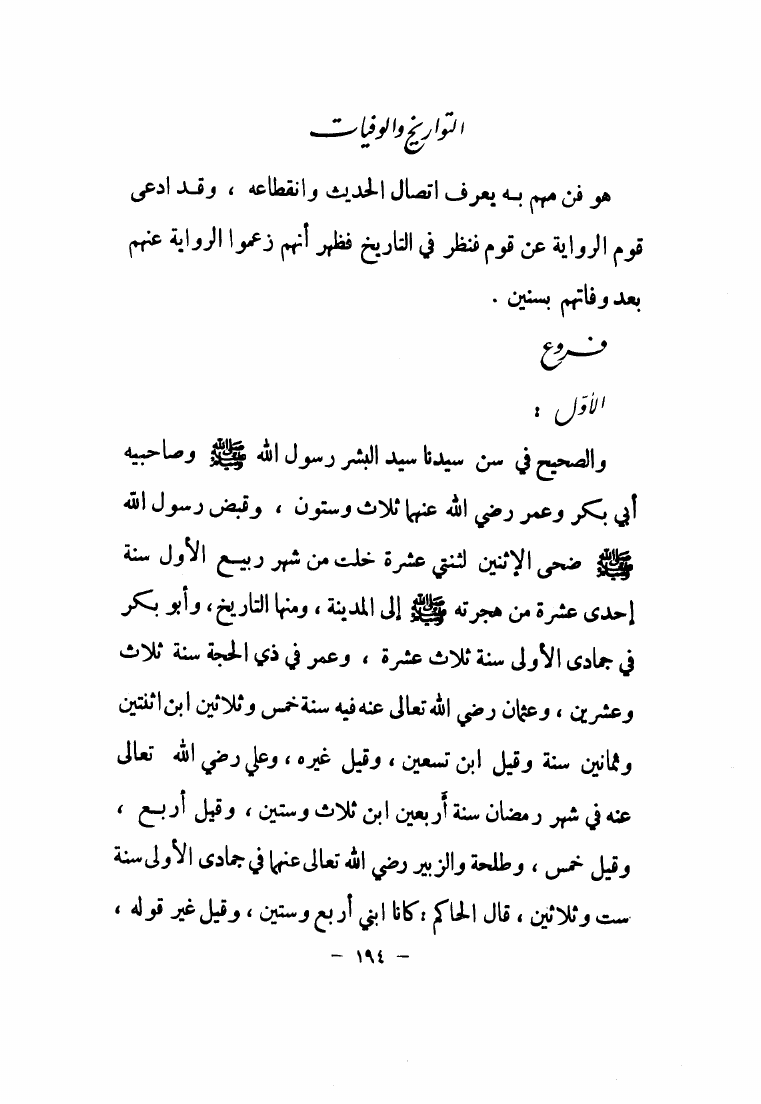 التواريخ والوفيات
هو فن مهم بـه يعرف اتصال الحديث وانقطاعه ، وقـد ادعى
قوم الرواية عن قوم فنظر في التاريخ فظهر أنهم زعموا الرواية عنهم
بعد وفاتهم بسنين .
فروع
الأوّل :
والصحيح في سن سيدنا سيد البشر رسول الله ﷺ وصاحبيه
أبي بكر وعمر رضي الله عنهما ثلاث وستون ، وقبض رسول الله
ﷺ ضحى الإثنين لثنتي عشرة خلت من شهر ربيع الأول سنة
إحدى عشرة من هجرته ﷺ إلى المدينة ، ومنها التاريخ، وأبو بكر
في جمادى الأولى سنة ثلاث عشرة ، وعمر في ذي الحجة سنة ثلاث
وعشرين ، وعثمان رضي الله تعالى عنه فيه سنة خمس وثلاثين ابن اثنتين
وثمانين سنة وقيل ابن تسعين ، وقيل غيره ، وعلي رضي الله تعالى
عنه في شهر رمضان سنة أربعين ابن ثلاث وستين ، وقيل أربـع ،
وقيل خمس ، وطلحة والزبير رضي الله تعالى عنهما في جمادى الأولى سنة
ست وثلاثين ، قال الحاكم : كانا ابني أربع وستين ، وقيل غير قوله ،
– ١٩٤ –